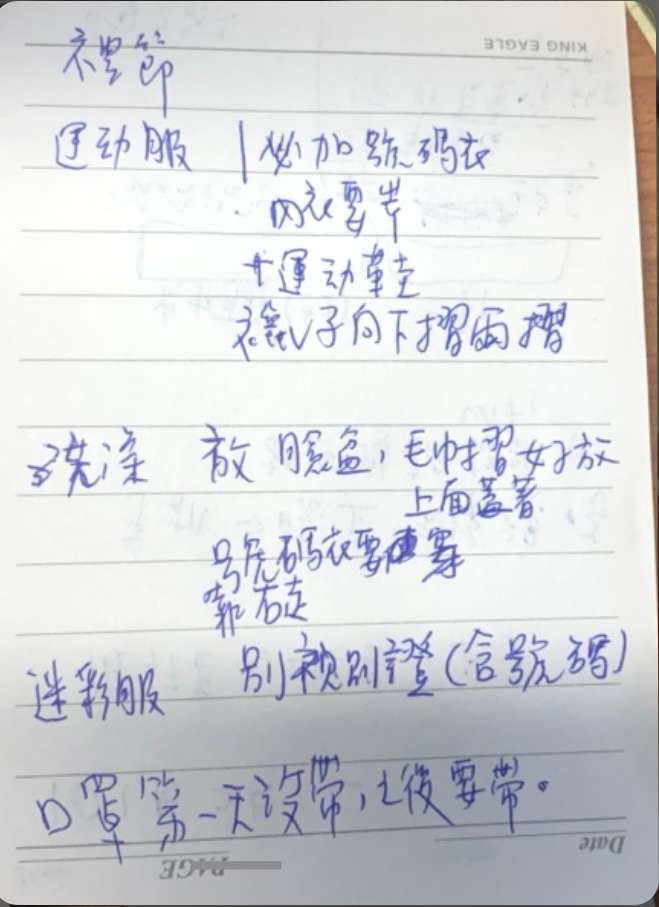 KING EAGLE
禮節
運动服 | 必加號碼衣
內衣要
+運动鞋
襪子向下摺兩摺
洗澡 放臉盆，毛巾摺好放
上面蓋著
号虎碼衣要穿
靠右走
迷彩服 別視別證(含號碼)
口罩第一天沒帶，之後要帶。
Date
PAGE